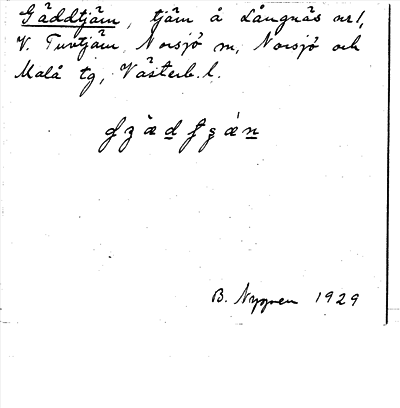 Gäddtjärn, tjärn å Långnäs nr 1,
V. Turtjärn, Norsjö sn, Norsjö och
Malå tg, Västerb. l.
B. Nygren 1929